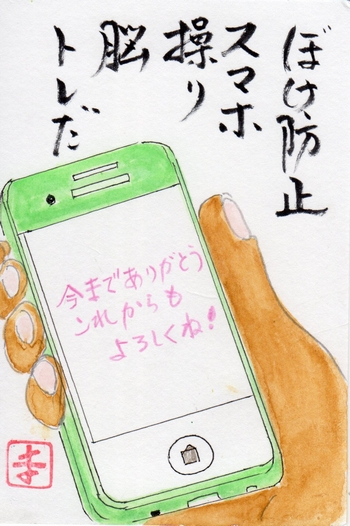 ぼけ防止
スマホ
操り
脳
トレだ
今までありがとう
これからも
よろしくね!